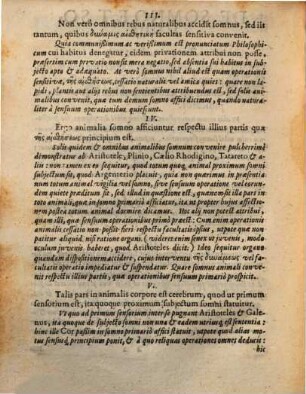 III.
Non verò omnibus rebus naturalibus accidit somnus, sed iis
tantum, quibus δύναμις αἰσθητικὴ facultas sensitiva convenit.
Quia communissimum at verissimum est pronunciatum Philosophi-
cum cui habitus denegetur, eidem privationem attribui non posse,
præsertim cum privatio non sit mera negatio, sed absentia sui habitus in
subjecto apto & adæquato. At verò somnus nihil aliud est quam operationis
sensitivæ, τῆς αἰσθήσεως, cessatio naturalis vel amica quies: quare nec lapi-
di, plantis aut aliis rebus non sentientibus attribuendus est, sed solis ani-
malibus convenit, quæ tum demum somno affici dicimus, quando natura-
liter à sensuum operationibus quiescunt.
IV.
Ergo animalia somno afficiuntur respectu illius partis quæ
τῆς αἰσθήσεως principium est.
Solis quidem & omnibus animalibus somnum convenire pulcherrimè
demonstratur ab Aristotele, Plinio, Cælio Rhodigino, Tatareto &
non tamen ex eo sequitur, quod totum quoq, animal proximum somni
subjectum sit, quod Argenterio placuit, quia non quærimus in præsenti-
num totum animal vigilet vel somno, sive sensuum operatione vel eorun-
dem quiete præditum sit, sed illud in quæstione est, quænam corporis
animalis pars primariò somno afficiatur, ita ut propter hujus affectio-
nem postea totum animal dormire dicamus. Hoc alij non poterit attribui,
quam illi, quæ sensuum operationibus primò præest: Cum enim operationis
animalis cessatio non possit fieri respectu facultatis ipsius, utpote quæ non
patitur quidquam, nisi respectu organi, (videret etenim senex ut juvenis, modò
oculum juvenis haberet, quod Aristoteles dicit.) Ideo sequitur organo
quandam dispositionem accedere, cujus interventu τῆς δυνάμεως vel fa-
cultatis operatio impediatur & suspendatur. Quare somnus animali con-
venit respectu illius partis, quæ operationibus sensuum primariò prospicit.
V.
Talis pars in animalis corpore est cerebrum, quod ut primum
sensorium est, ita quoque proximum subjectum somni statuitur.
Ut quo ad primum sensorium inter se pugnant Aristoteles & Gale-
nus, ita quoque de subjecto somni non una & eadem utriusq; est sententia:
ille Cor passim in somno primariò affici statuit, utpote quod alias mo-
tus sensusq; principium ponit, & à quo reliquas operationes omnes deducit:
hic